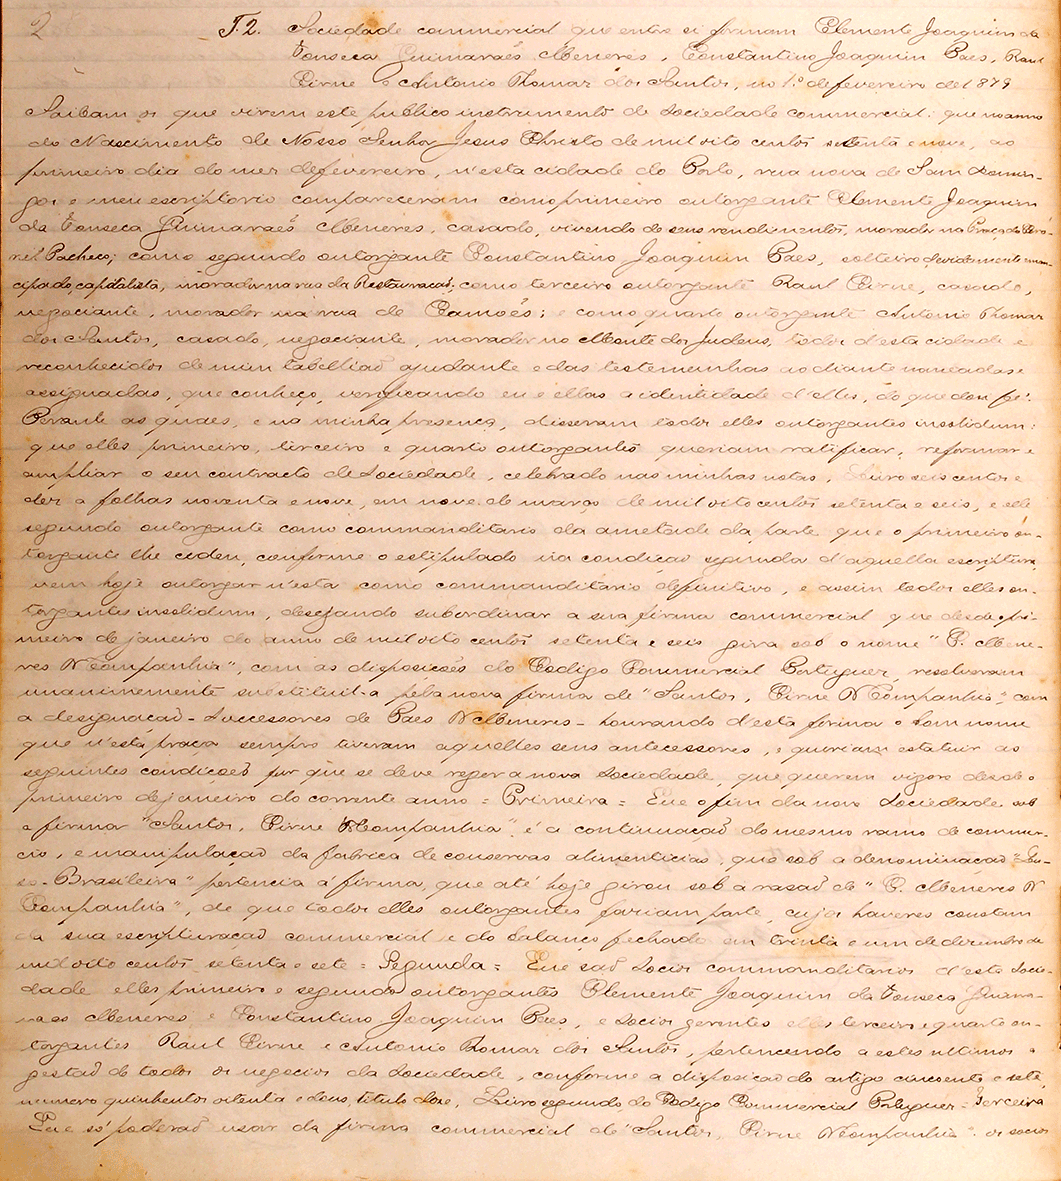 2 T. 2. Sociedade commercial que entre si formam Clemente Joaquim da
Fonseca Guimaraẽs Menéres, Constantino Joaquim Paes, Raul
Cirne e Antonio Thomaz dos Santos, no 1.º de fevereiro de 1879
Saibam os que virem este publico instrumento de sociedade commercial: que no anno
do Nascimento de Nosso Senhor Jesus Christo de mil oito centos setenta e nove, ao
primeiro dia do mez de fevereiro, n'esta cidade do Porto, rua nova de Sam Domin-
gos e meu escriptorio compareceram como primeiro outorgante Clemente Joaquim
da Fonseca Guimaraẽs Menéres, casado, vivendo de seus rendimentos, morador na Praça do Coro-
nel Pacheco; como segundo outorgante Constantino Joaquim Paes, solteiro, devidamente eman-
cipado, capitalista, morador na rua da Restauracaõ; como terceiro outorgante Raul Cirne, casado,
negociante, morador na rua de Camoẽs; e como quarto outorgante Antonio Thomaz
dos Santos, casado, negociante, morador no Monte dos Judeus, todos d'esta cidade e
reconhecidos de mim tabelliaõ ajudante e das testemunhas ao diante nomeadas e
assignadas, que conheço, verificando eu e ellas a identidade d'elles, do que dou fé.
Perante as quaes, e na minha presença, disseram todos elles outorgantes insolidum:
que elles primeiro, terceiro e quarto outorgantes queriam ratificar, reformar e
ampliar o seu contracto de sociedade, celebrado nas minhas notas, Livro seis centos e
dez a folhas noventa e nove, em nove de março de mil oito centos setenta e seis, e elle
segundo outorgante como commanditario da ametade da parte que o primeiro ou-
torgante lhe cedeu, conforme o estipulado na condicaõ segunda d'aquella escriptura,
vem hoje outorgar n'esta como commanditario definitivo, e assim todos elles ou-
torgantes insolidum, desejando subordinar a sua firma commercial que desde pri-
meiro de janeiro do anno de mil oito centos setenta e seis gira sob o nome "C. Mene-
res & Companhia", com as disposicoẽs do Codigo Commercial Portuguez, resolveram
unanimemente substituil-a pela nova firma de "Santos, Cirne & Companhia", com
a designacaõ - Successores de Paes & Meneres - honrando d'esta forma o bom nome
que n'esta praca sempre tiveram aquelles seus antecessores, e queriam estatuir as
seguintes condiçoẽs por que se deve reger a nova sociedade, que querem vigore desde o
primeiro de janeiro do corrente anno = Primeira = Que o fim da nova sociedade sob
a firma "Santos, Cirne & Companhia", é a continuaçaõ do mesmo ramo de commer-
cio, e manipulaçaõ da fabrica de conservas alimenticias, que sob a denominaçaõ "Lu-
so-Brasileira" pertencia á firma, que até hoje girou sob a rasaõ de "C. Menéres &
Companhia", de que todos elles outorgantes faziam parte, cujos haveres constam
da sua escripturaçaõ commercial e do balanço fechado em trinta e um de dezembro de
mil oito centos setenta e sete = Segunda = Que saõ socios commanditarios d'esta socie-
dade elles primeiro e segundo outorgantes Clemente Joaquim da Fonseca Guima-
raẽs Meneres e Constantino Joaquim Paes, e socios gerentes elles terceiro e quarto ou-
torgantes Raul Cirne e Antonio Thomaz dos Santos, pertencendo a estes ultimos a
gestaõ de todos os negocios da sociedade, conforme a disposicaõ do artigo cincoenta e sete,
numero quinhentos oitenta e dous, titulo doze, Livro segundo, do Codigo Commercial Portuguez = Terceira
Que só poderaõ usar da firma commercial de "Santos, Cirne & Companhia", os socios